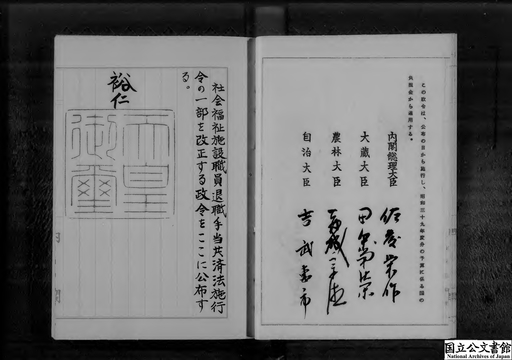 この政令は、公布の日から施行し、昭和三十九年度分の予算に係る国の
から適用する。
内閣総理大臣 佐藤栄作
大蔵大臣 田中角栄
農林大臣 赤城宗徳
自治大臣 吉武恵市
社会福祉施設職員退職手当共済法施行
令の一部を改正する政令をここに公布す
る。
裕仁
天皇
御璽
国立公文書館
National Archives of Japan